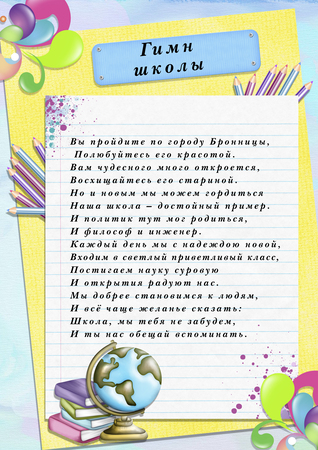 Гимн
школы
Вы пройдите по городу Бронницы,
Полюбуйтесь его красотой.
Вам чудесного много откроется,
Восхищайтесь его стариной.
Но и новым мы можем гордиться
Наша школа – достойный пример.
И политик тут мог родиться,
И философ и инженер.
Каждый день мы с надеждою новой,
Входим в светлый приветливый класс,
Постигаем науку суровую
И открытия радуют нас.
Мы добрее становимся к людям,
И всё чаще желанье сказать:
Школа, мы тебя не забудем,
И ты нас обещай вспоминать.